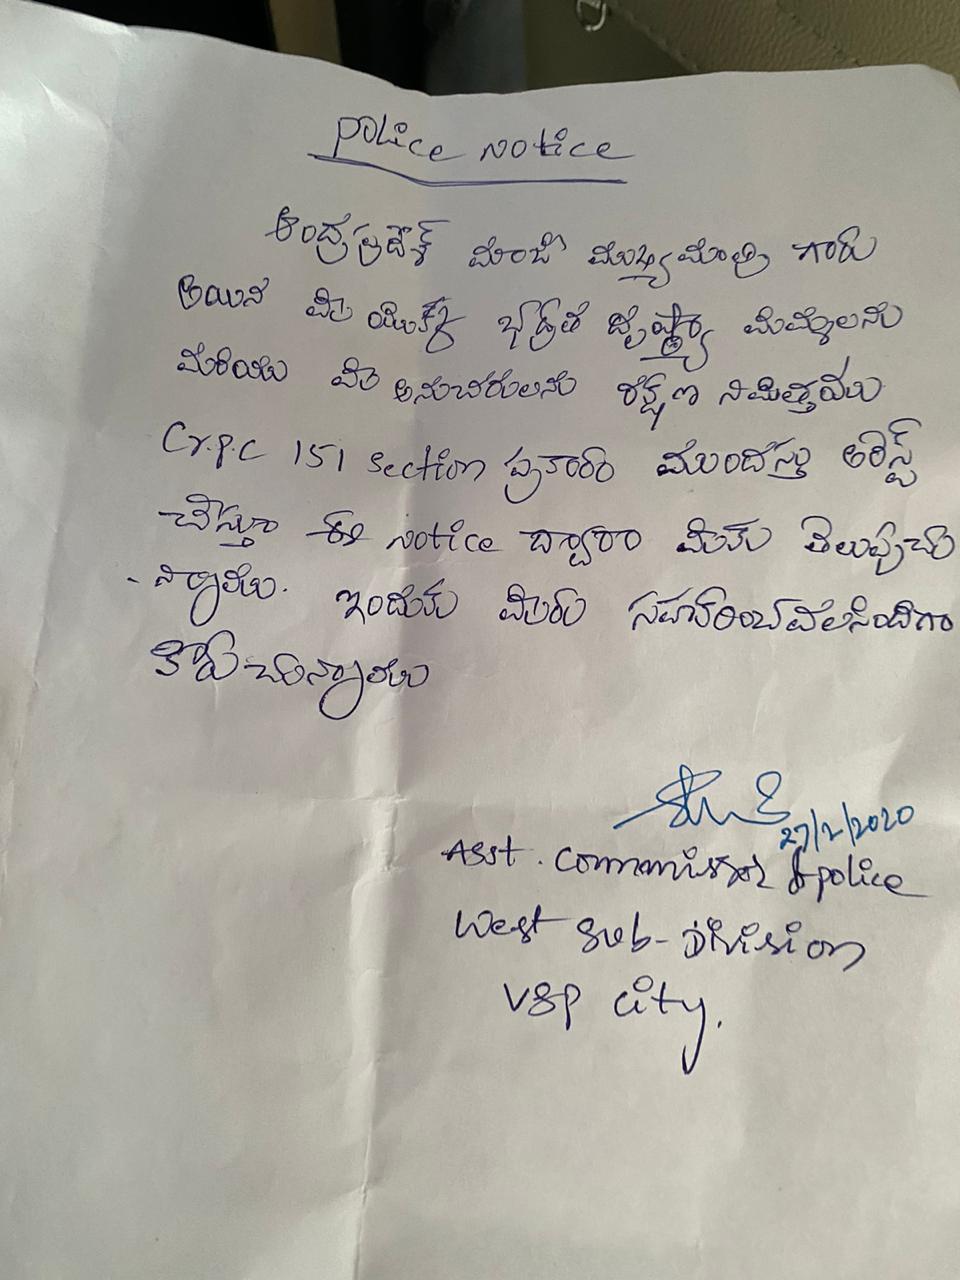 police notice
ఆంధ్రప్రదేశ్ మాంజీ ముఖ్యమంత్రి గారు
అయిన మీ యొక్క భద్రత దృష్ట్యా మిమ్మలను
మరియు మీ అనుచరులను రక్షణ నిమిత్తము
Cr.P.C 151 section ప్రకారం ముందస్తు అరెస్ట్
చేస్తూ ఈ notice ద్వారా మీకు తెలుపుచు
-న్నాము. ఇందుకు మీరు సహకరించవలసిందిగా
కోరుచున్నాము
27/2/2020
Asst. commissioner of police
West sub-division
VSP city.